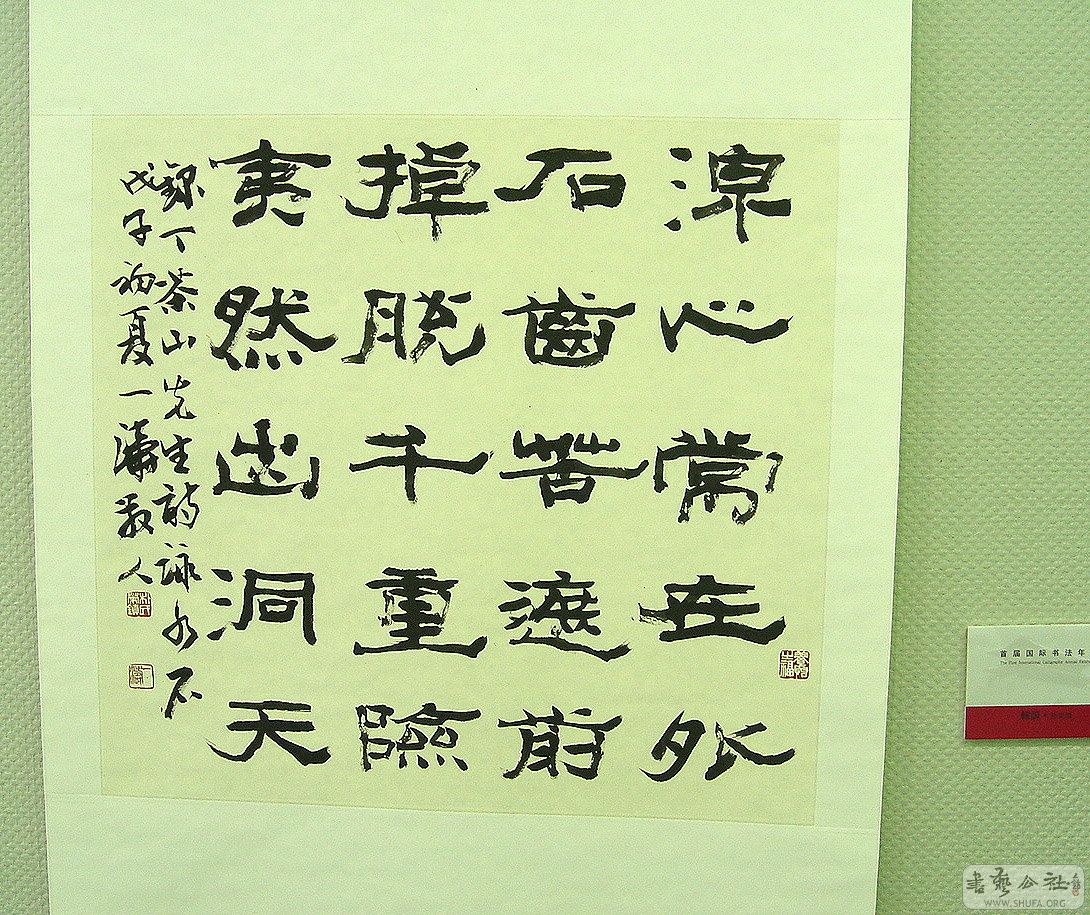 泉心常在外
石齒苦遮前
掉脱千重險
夷然出洞天
錄丁茶山先生詩詠水石
戊子初夏一濤散人
首届国际书法年
The First International Calligraphy Annual Exhib
韩国
书艺公社
WWW.SHUFA.ORG